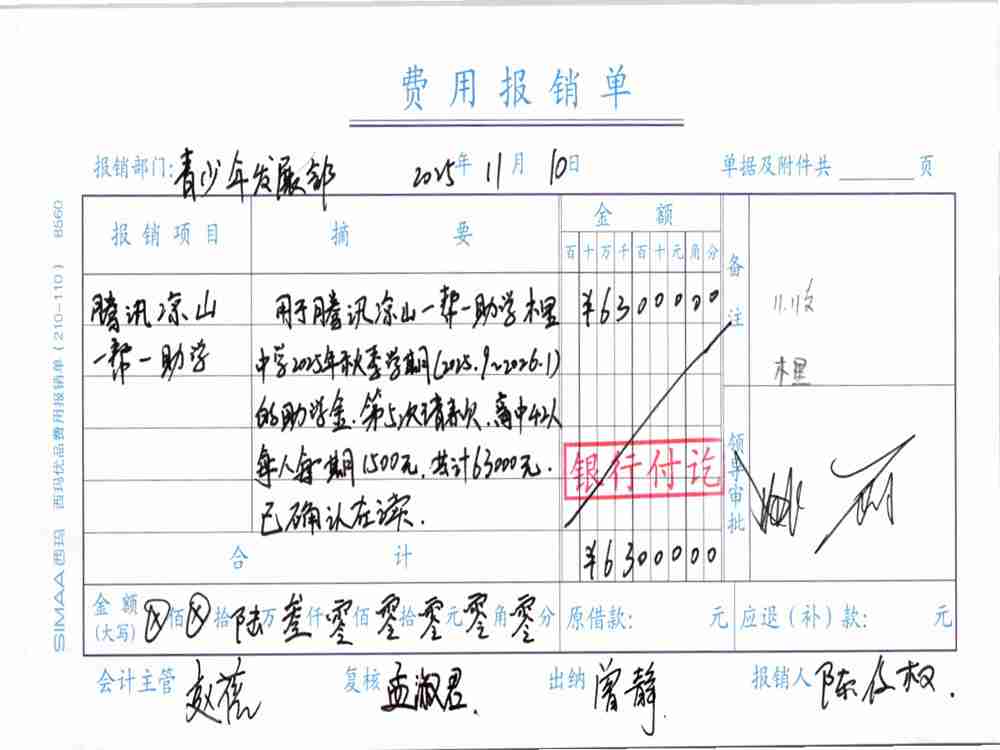 费用报销单
报销部门:青少年发展部 2025年11月10日 单据及附件共 页
报销项目 摘要 金额 备注
百十万千百十元角分
腾讯凉山 用于腾讯凉山一帮一助学木里 ¥6300000 11.11
一帮一助学 中学2025年秋季学期(2025.9~2026.1) 木里
的助学金.第5次请款,高中42人
每人每期1500元,共计63000元.
已确认在读.
银行付讫
领导审批
合计 ¥6300000
金额(大写) ⊗佰⊗拾陆万叁仟零佰零拾零元零角零分 原借款: 元 应退(补)款: 元
会计主管 复核 孟淑君. 出纳 曾静 报销人
SIMAA 西玛 西玛优品费用报销单(210-110) 8560